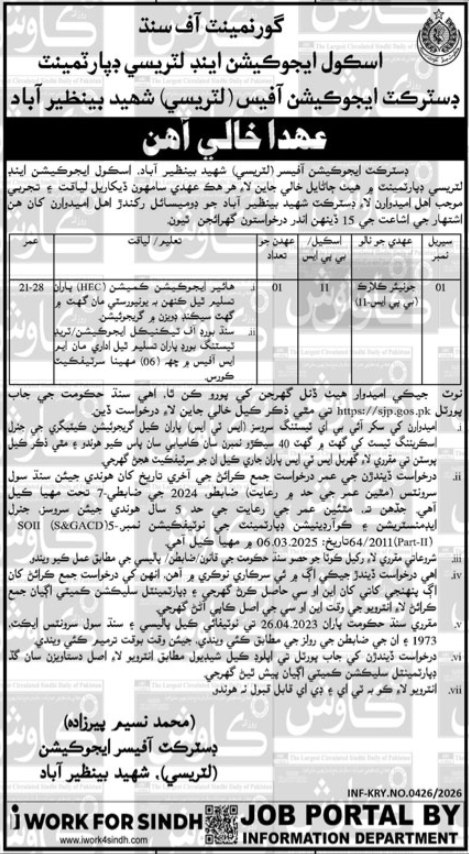 گورنمينٽ آف سنڌ
اسڪول ايجوڪيشن اينڊ لٽريسي ڊپارٽمينٽ
ڊسٽرڪٽ ايجوڪيشن آفيس (لٽريسي) شهيد بينظير آباد
عهدا خالي آهن
ڊسٽرڪٽ ايجوڪيشن آفيسر (لٽريسي) شهيد بينظير آباد، اسڪول ايجوڪيشن اينڊ
لٽريسي ڊپارٽمينٽ ۾ هيٺ ڄاڻايل خالي جاين لاءِ هر هڪ عهدي سامهون ڏيکاريل لياقت ۽ تجربي
موجب اهل اميدوارن لاءِ ڊسٽرڪٽ شهيد بينظير آباد جو ڊوميسائل رکندڙ اهل اميدوارن کان هن
اشتهار جي اشاعت جي 15 ڏينهن اندر درخواستون گهرائجن ٿيون.
سيريل نمبر
عهدي جو نالو
اسڪيل/ بي پي ايس
عهدن جو تعداد
تعليم/ لياقت
عمر
01
جونيئر ڪلارڪ (بي پي ايس-11)
11
01
i. هائير ايجوڪيشن ڪميشن (HEC) پاران
تسليم ٿيل ڪنهن به يونيورسٽي مان گهٽ ۾
گهٽ سيڪنڊ ڊويزن ۾ گريجوئيشن.
ii. سنڌ بورڊ آف ٽيڪنيڪل ايجوڪيشن/ٽريڊ
ٽيسٽنگ بورڊ پاران تسليم ٿيل اداري مان ايم
ايس آفيس ۾ ڇهه (06) مهينا سرٽيفڪيٽ
ڪورس.
21-28
نوٽ: جيڪي اميدوار هيٺ ڏنل گهرجن کي پورو ڪن ٿا، اهي سنڌ حڪومت جي جاب
پورٽل https://sjp.gos.pk تي مٿي ذڪر ڪيل خالي جاين لاءِ درخواست ڏين.
i. اميدوارن کي سکر آئي بي اي ٽيسٽنگ سروسز (ايس ٽي ايس) پاران ڪيل گريجوئيشن ڪيٽيگري جي جنرل
اسڪريننگ ٽيسٽ کي گهٽ ۾ گهٽ 40 سيڪڙو نمبرن سان ڪاميابي سان پاس ڪيو هوندو ۽ مٿي ذڪر ڪيل
پوسٽن تي مقرري لاءِ گهربل ايس ٽي ايس پاران جاري ڪيل ان جو سرٽيفڪيٽ هجڻ گهرجي.
ii. درخواست ڏيندڙن جي عمر درخواست جمع ڪرائڻ جي آخري تاريخ کان ڳڻي ويندي جيئن سنڌ سول
سرونٽس (مٿين عمر جي حد ۾ رعايت) ضابطو، 2024 جي ضابطي-7 تحت مهيا ڪيل
آهي، جڏهن ته، مٿين عمر جي رعايت جي حد 5 سال هوندي جيئن سروسز، جنرل
ايڊمنسٽريشن ۽ ڪوآرڊينيشن ڊپارٽمينٽ جي نوٽيفڪيشن نمبر-SOII (S&GACD)5-
64/2011(Part-II)تاريخ: 06.03.2025 ۾ مهيا ڪيل آهي.
iii. شروعاتي مقرري لاءِ رکيل ڪوٽا جو حصر سنڌ حڪومت جي قانون/ضابطن/ پاليسي جي مطابق عمل ڪيو ويندو
iv. اهي درخواست ڏيندڙ جيڪي اڳ ۾ ئي سرڪاري نوڪري ۾ آهن، انهن کي درخواست جمع ڪرائڻ کان
اڳ پنهنجي کاتي کان اين او سي حاصل ڪرڻ گهرجي ۽ ڊپارٽمينٽل سليڪشن ڪميٽي اڳيان جمع
ڪرائڻ ۽ انٽرويو جي وقت اين او سي جي اصل ڪاپي آڻڻ گهرجي.
v. مقرري سنڌ حڪومت پاران 26.04.2023 تي نوٽيفائي ڪيل پاليسي ۽ سنڌ سول سرونٽس ايڪٽ،
1973 ۽ ان جي ضابطن جي رولز جي مطابق ڪئي ويندي، جيئن وقت بوقت ترميم ڪئي ويندي.
vi. درخواست ڏيندڙن کي جاب پورٽل تي اپلوڊ ڪيل شيڊيول مطابق انٽرويو لاءِ اصل دستاويزن سان گڏ
ڊپارٽمينٽل سليڪشن ڪميٽي اڳيان پيش ٿيڻ گهرجي.
vii. انٽرويو لاءِ ڪو به ٽي اي ۽ ڊي اي قابل قبول نه هوندو.
(محمد نسيم پيرزاده)
ڊسٽرڪٽ آفيسر ايجوڪيشن
(لٽريسي)، شهيد بينظير آباد
INF-KRY.NO.0426/2026
i WORK FOR SINDH
www.iwork4sindh.com
JOB PORTAL BY
INFORMATION DEPARTMENT